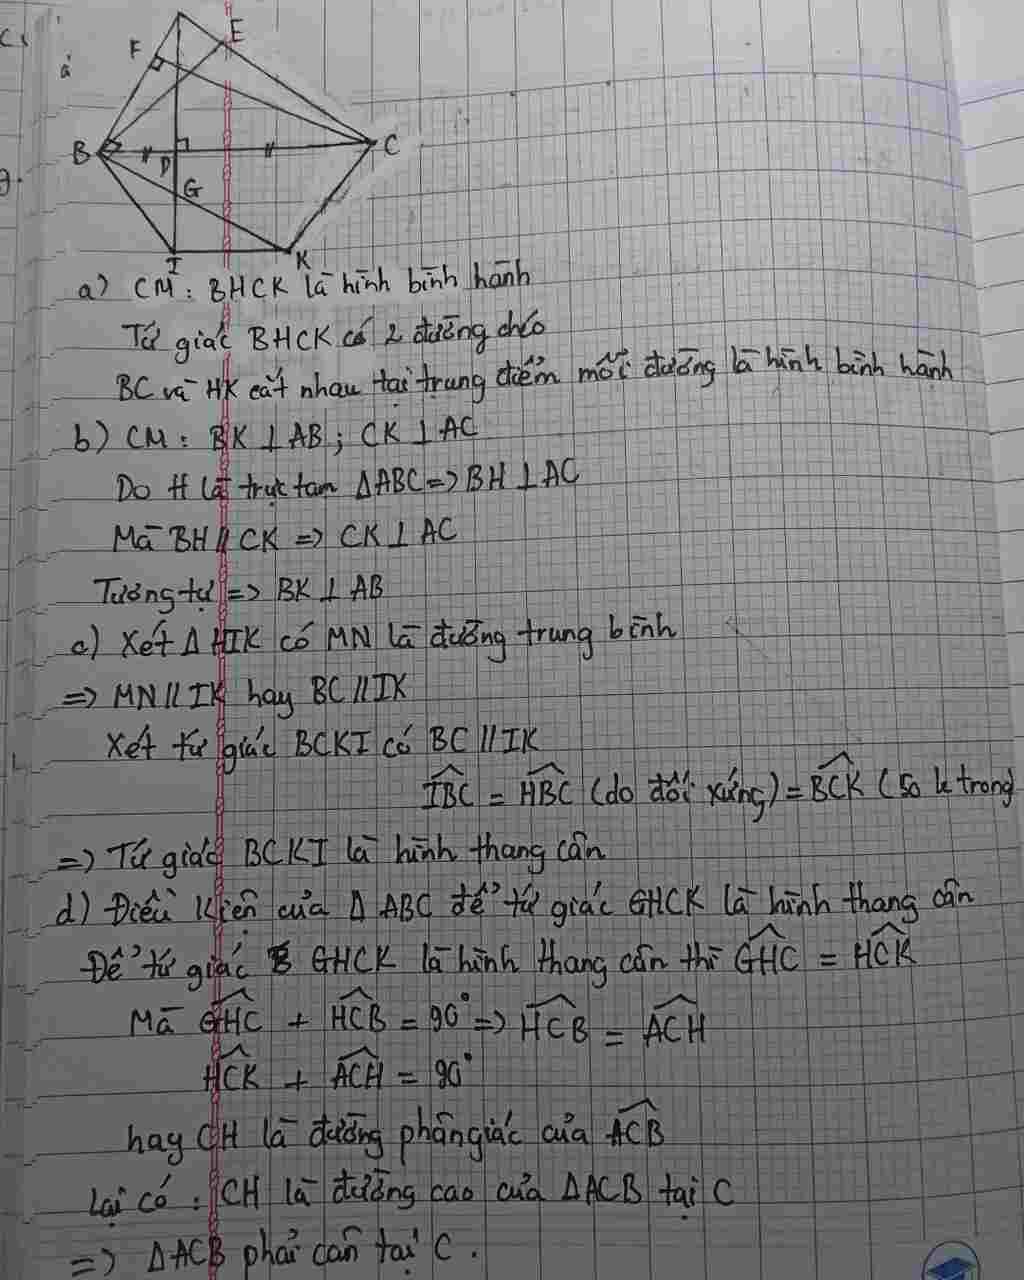 E
F
B
C
D
G
I
K
a) CM: BHCK là hình bình hành
Tứ giác BHCK có 2 đường chéo
BC và HK cắt nhau tại trung điểm mỗi đường là hình bình hành
b) CM: BK ⊥ AB; CK ⊥ AC
Do H là trực tam ΔABC => BH ⊥ AC
Mà BH // CK => CK ⊥ AC
Tương tự => BK ⊥ AB
c) Xét Δ HIK có MN là đường trung bình
=> MN // IK hay BC // IK
Xét tứ giác BCKI có BC // IK
\widehat{IBC} = \widehat{HBC} (do đối xứng) = \widehat{BCK} (So le trong)
=> Tứ giác BCKI là hình thang cân
d) Điều kiện của Δ ABC để tứ giác GHCK là hình thang cân
Để tứ giác GHCK là hình thang cân thì \widehat{GHC} = \widehat{HCK}
Mà \widehat{GHC} + \widehat{HCB} = 90° => \widehat{HCB} = \widehat{ACH}
\widehat{HCK} + \widehat{ACH} = 90°
hay CH là đường phân giác của \widehat{ACB}
Lại có: CH là đường cao của ΔACB tại C
=> ΔACB phải cân tại C.